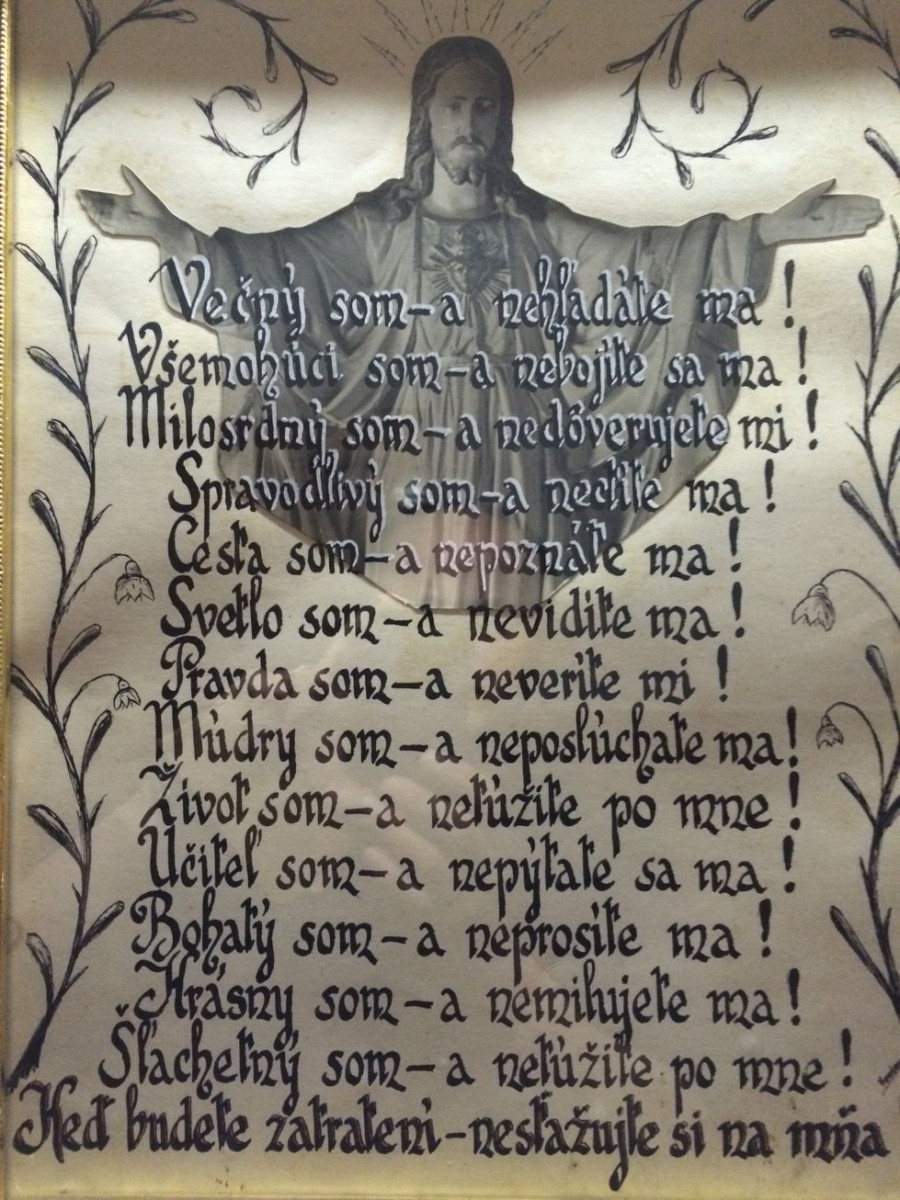 Večný som-a nehľadáte ma!
Všemohúci som-a nebojíte sa ma!
Milosrdný som-a nedôverujete mi!
Spravodlivý som-a nectíte ma!
Cesta som-a nepoznáte ma!
Svetlo som-a nevidíte ma!
Pravda som-a neveríte mi!
Múdry som-a neposlúchate ma!
Život som-a netúžite po mne!
Učiteľ som-a nepýtate sa ma!
Bohatý som-a neprosíte ma!
Krásny som-a nemilujete ma!
Šľachetný som-a netúžite po mne!
Keď budete zatratení-nesťažujte si na mňa